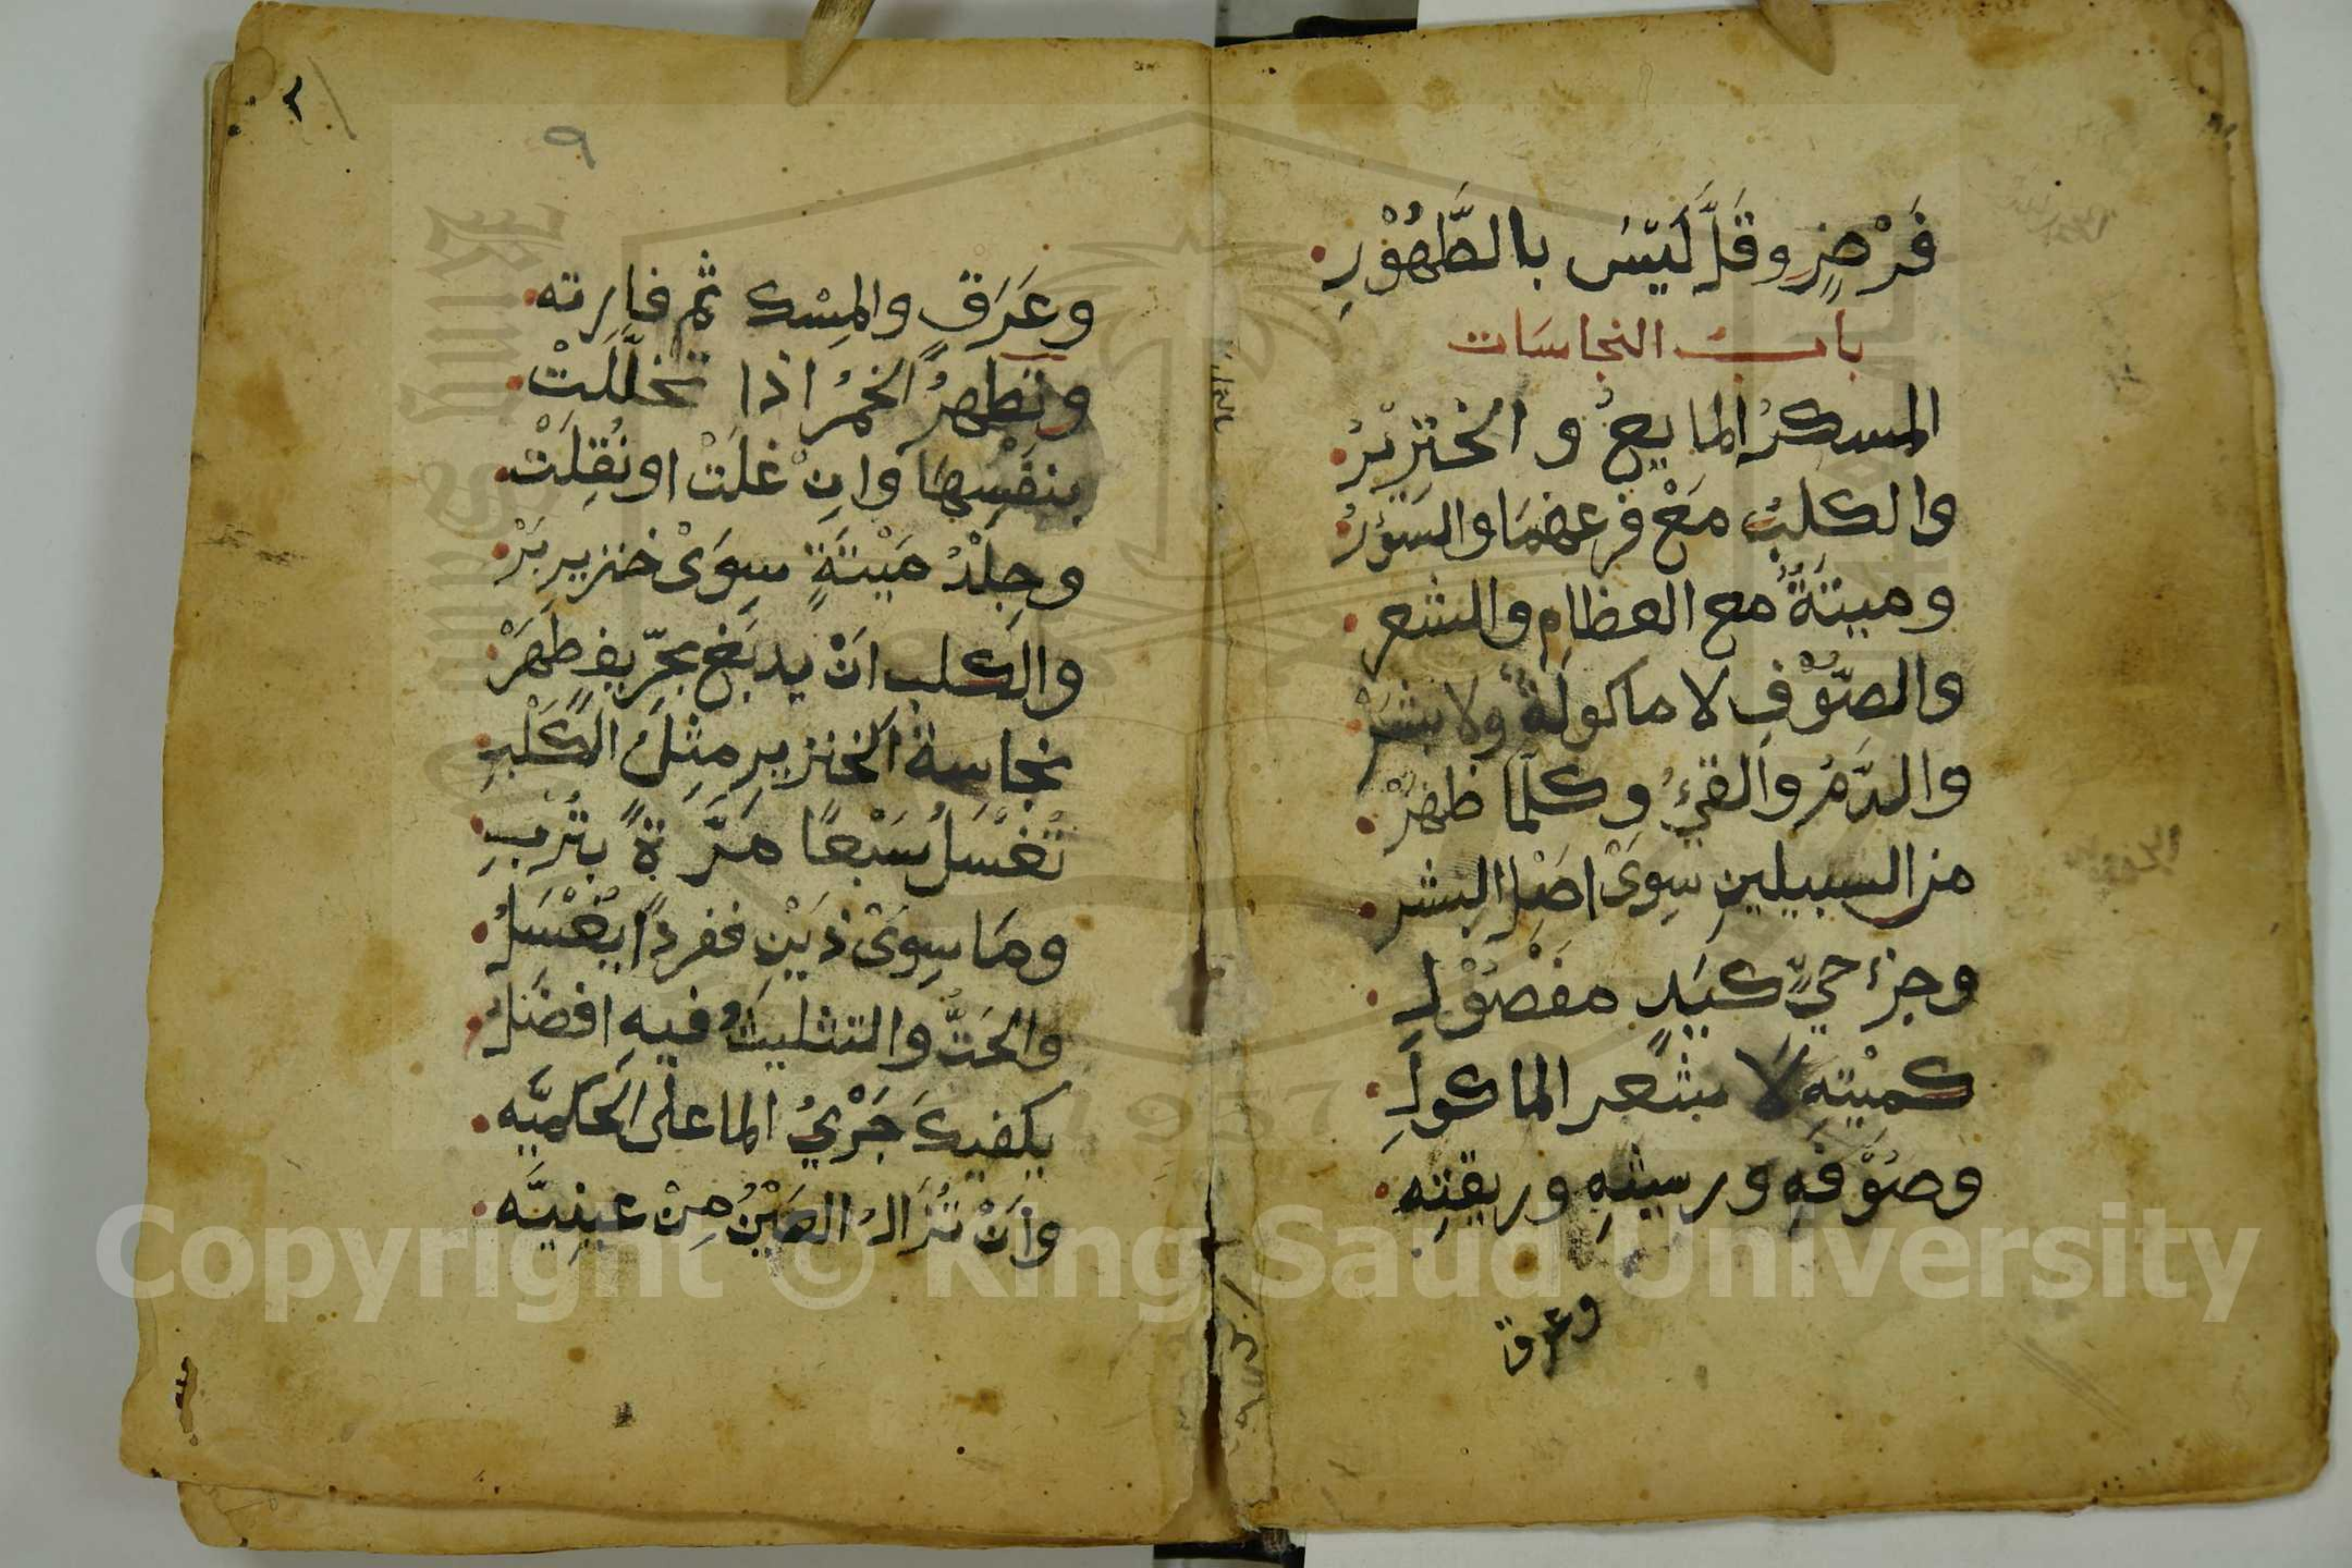 فَرْضٍ وقَلَّ لَيْسَ بالطَّهُوْرِ
باب النجاسات
المسكرُ المايعُ و الخنزيرُ
والكلبُ مَعْ فرعهمَا والسَوْرُ
وميتَةٌ مع العظامِ والشعر
والصّوْفِ لا ماكولةٌ ولا بشَرْ
والدَّمُ والقيْءُ وكلّما ظهَرْ
من السبيلين سِوَىْ اصْلِ البشر
وجزء حيٍّ كيَدٍ مفْصُوْلِ
كميْتِهِ لا شعر الماكولِ
وصُوْفَهِ وريشِهِ وريقتِهِ
وعرق
٩
وعَرَقٍ والمِسْك ثم فارته
وتطهرُ الخمرُ اذا تخلّلَتْ
بنفْسِهَا وانْ غلَتْ او نُقِلَتْ
وجِلْدُ مَيْتَةٍ سِوَىْ خنزير بَرْ
والكلب انْ يدبَغ بحِرّيفٍ طهَرْ
نجاسة الخنزيرِ مِثلُ الكَلْبِ
تُغْسَلُ سَبْعًا مَرَّةً بتُرْبِ
ومَا سِوَىْ ذَيْنِ ففردًا يُغْسَلُ
والحَتُّ والتثليثُ فيهِ افضَلُ
يكفيكَ جَرْيُ الما على الحكميَّه
وأنْ تُزَالَ العَيْنُ مِنْ عينيَّه
Copyright © King Saud University
1957